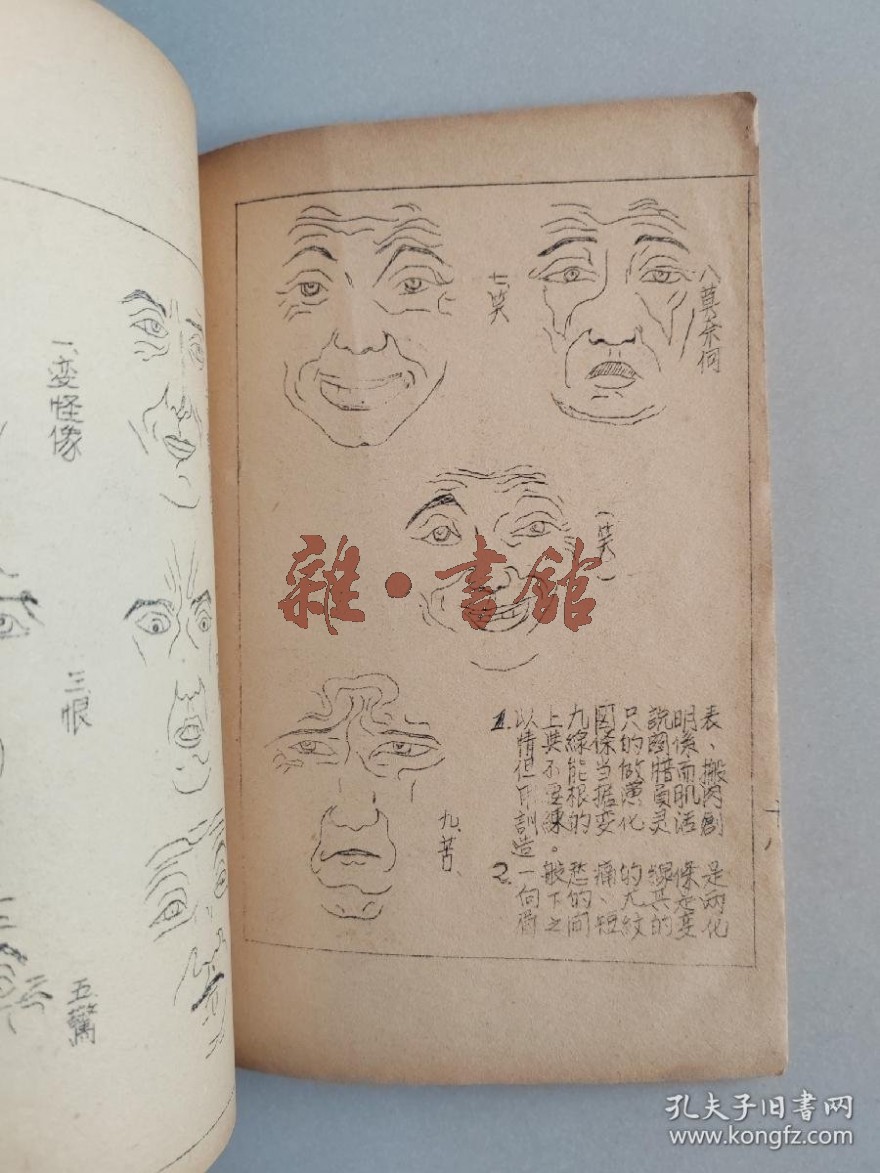 一、変怪像
三、恨
五、驚
七、笑
八、莫奈何
一笑一
九、苦、
1. 以上九圖尺説明表
情與線條的関係、
但不能当做惜而搬
用是根據演員肌肉
訓練的变化灵活創
造。
2. 一般愁痛的線條是
向下的、尤其是兩
眉之间短紋的变化
十八
雜·書館
孔夫子旧书网
www.kongfz.com